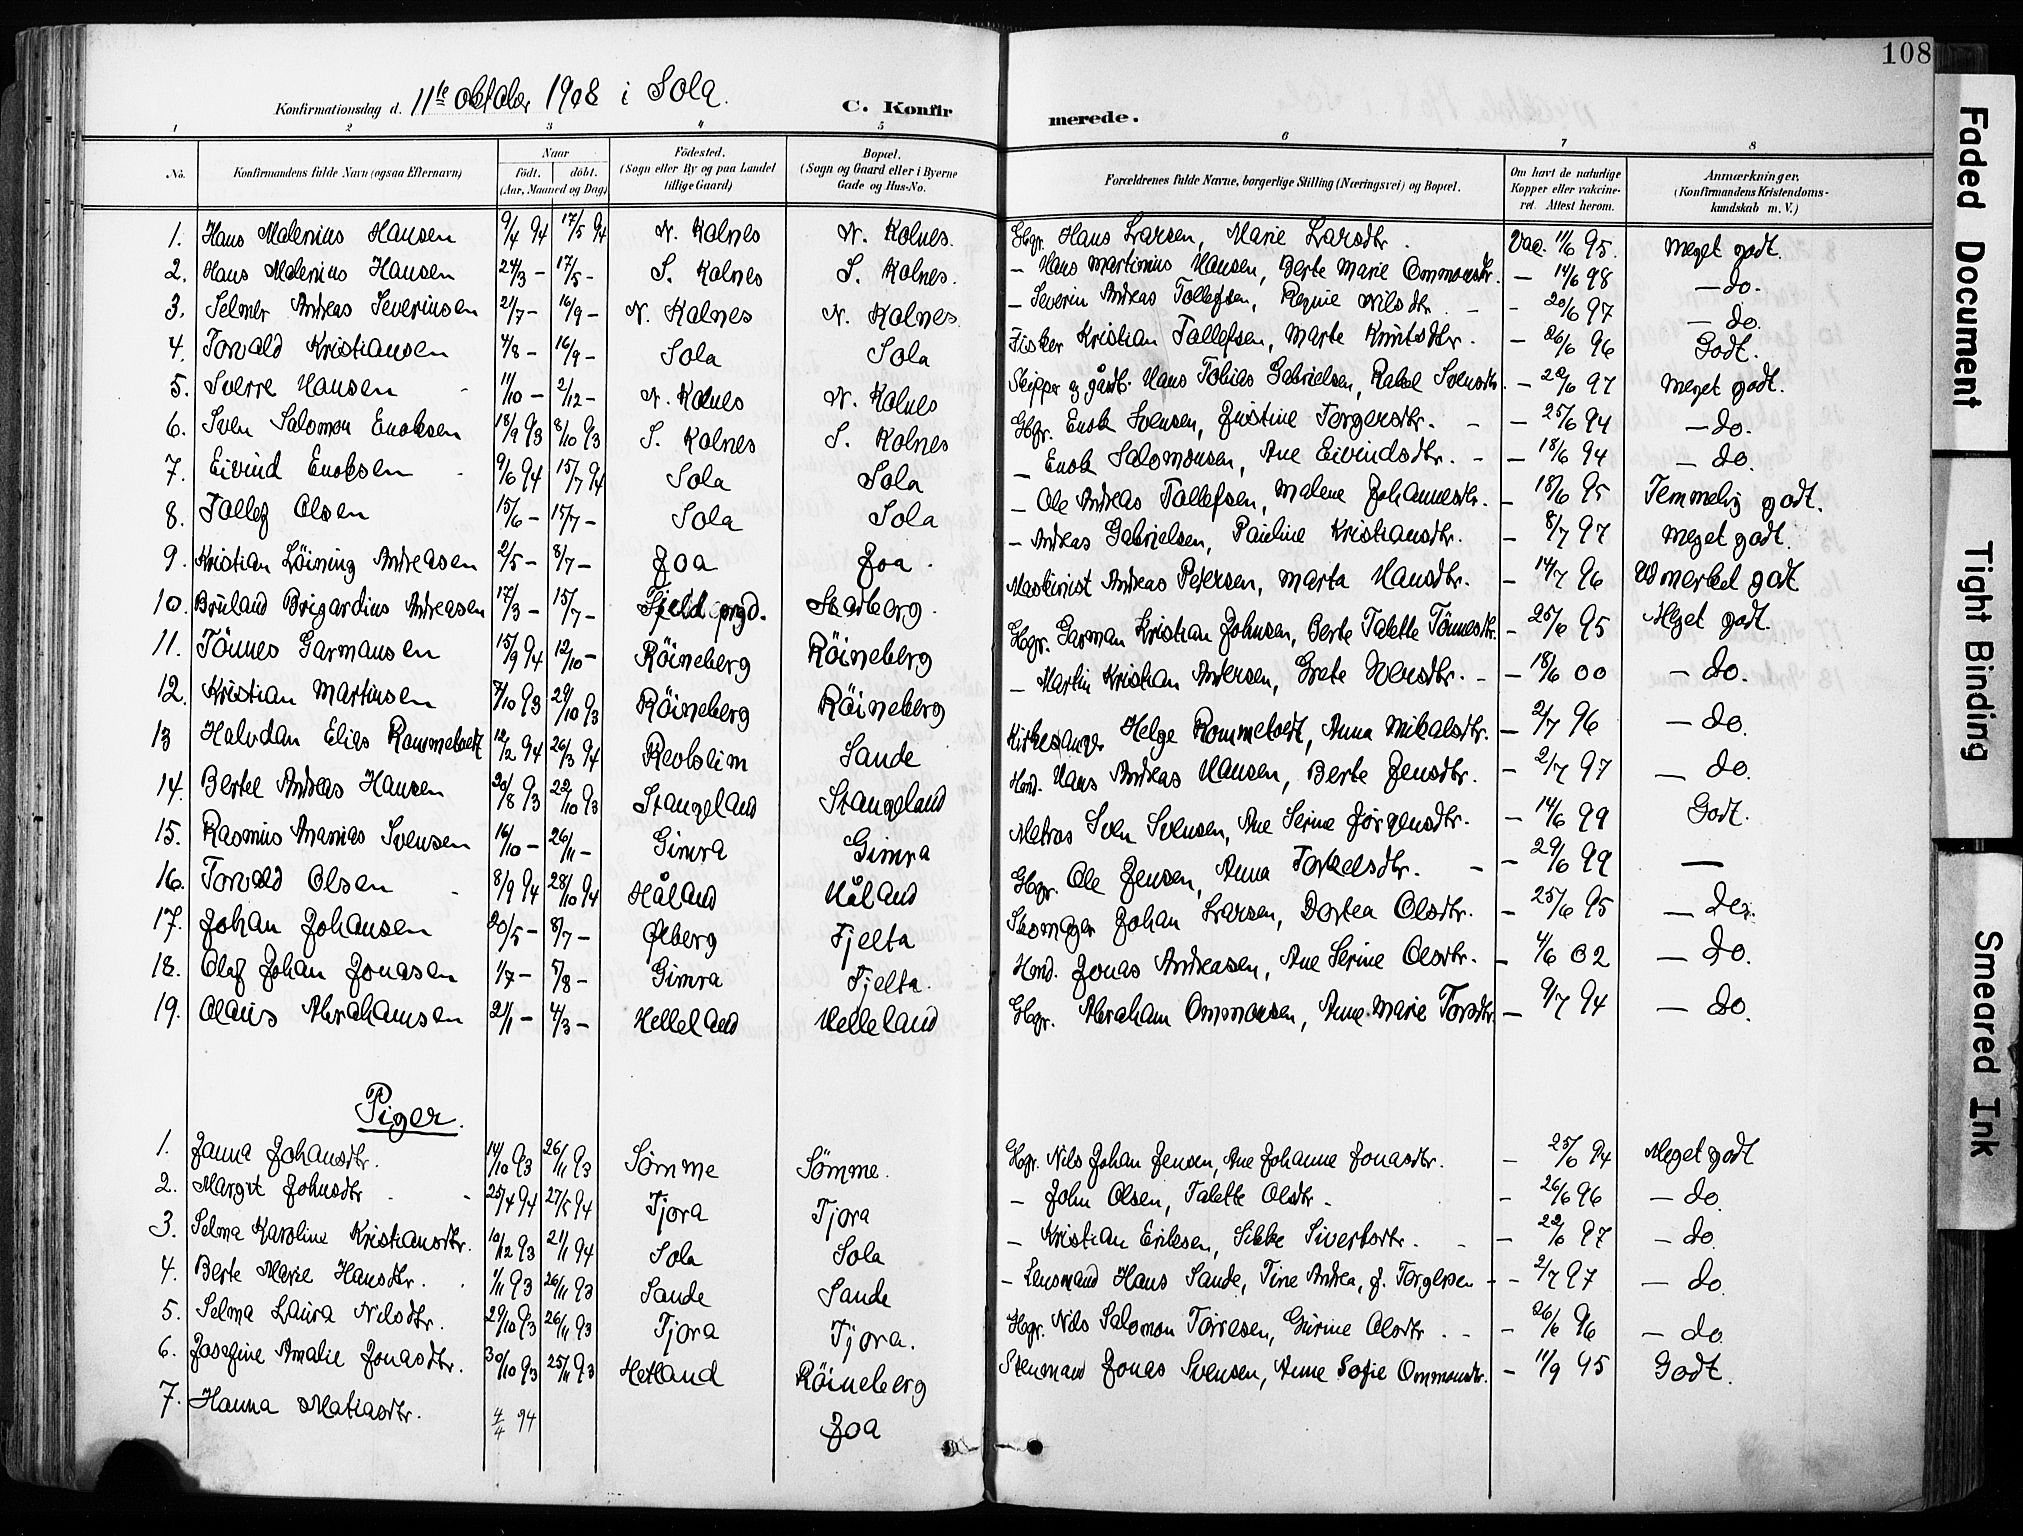 108
Konfirmationsdag d. 11te oktober 1908 i Sola.
C. Konfirmerede.
1 2 3 4 5 6 7 8
No. Konfirmandens fulde Navn (ogsaa Efternavn) Naar født. døbt. (Aar, Maaned og Dag) Fødested. (Sogn eller By og paa Landet tillige Gaard) Bopæl. (Sogn og Gaard eller i Byerne Gade og Hus-No. Forældrenes fulde Navne, borgerlige Stilling (Næringsvei) og Bopæl. Om havt de naturlige Kopper eller vakcineret. Attest herom. Anmærkninger. (Konfirmandens Kristendomskundskab m. V.)
1. Hans Malenius Hansen 9/4 94 17/5 94 N. Kolnes N. Kolnes. Gbgr. Hans Larsen, Marie Larsdtr. Vac. 11/6 95. Meget godt.
2. Hans Malenius Hansen 24/3 - 17/5 - S. Kolnes S. Kolnes. - Hans Martinius Hansen, Berte Marie Ommonsdtr. - 14/6 98 - do.
3. Selmer Andreas Severinsen 21/7 - 16/9 - N. Kolnes N. Kolnes. - Severin Andreas Tollefsen, Regine Nilsdtr. - 20/6 97 - do.
4. Torvald Kristiansen 4/8 - 16/9 - Sola Sola Fisker Kristian Tollefsen, Marte Knutsdtr. - 26/6 96 Godt.
5. Sverre Hansen 11/10 - 2/12 - N. Kolnes N. Kolnes Skipper og gårdb. Hans Tobias Gabrielsen, Rakel Svensdtr. - 20/6 97 Meget godt.
6. Sven Salomon Enoksen 18/9 93 8/10 93 S. Kolnes S. Kolnes Gbgr. Enok Svensen, Justine Torgersdtr. - 25/6 94 - do.
7. Eivind Enoksen 9/6 94 15/7 94 Sola Sola - Enok Salomonsen, Ane Eivindsdtr. - 18/6 94 - do.
8. Tollef Olsen 15/6 - 15/7 - Sola Sola - Ole Andreas Tollefsen, Malene Johannesdtr. - 18/6 95 Temmelig godt.
9. Kristian Löining Andreasen 2/5 - 8/7 - Joa Joa. - Andreas Gabrielsen, Pauline Kristiansdtr. - 8/7 97 Meget godt.
10. Bruland Brigardius Andreasen 17/3 - 15/7 - Fjeld prgd. Stadberg. Maskinist Andreas Petersen, Marta Hansdtr. - 14/7 96 Udmerket godt
11. Tönnes Garmansen 15/9 94 12/10 - Röineberg Röineberg Gbgr. Garman Kristian Johnsen, Berte Talette Tönnesdtr. - 25/6 95 Meget godt.
12. Kristian Martinsen 7/10 93 29/10 93 Röineberg Röineberg - Martin Kristian Andersen, Grete Iversdtr. - 18/6 00 - do.
13 Halvdan Elias Rommetvedt 12/2 94 26/3 94 Revheim Sande Kirkesanger Helge Rommetvedt, Anna Mikalsdtr. - 2/7 96 - do.
14. Bertel Andreas Hansen 20/8 93 22/10 93 Stangeland Stangeland Hmd. Hans Andreas Hansen, Berte Jensdtr. - 2/7 97 - do.
15. Rasmus Ananias Svensen 16/10 - 26/11 - Gimra Gimra Matros Sven Svensen, Ane Serine Jørgensdtr. - 14/6 99 Godt.
16. Torvald Olsen 8/9 94 28/10 94 Håland Håland Gbgr. Ole Jensen, Anna Torkelsdtr. - 29/6 99 -
17. Johan Johansen 20/5 - 8/7 - Ølberg Fjelta Skomager Johan Larsen, Dortea Olsdtr. - 25/6 95 - do.
18. Olaf Johan Jonasen 1/7 - 5/8 - Gimra Fjelta. Hmd. Jonas Andreasen, Ane Serine Olsdtr. - 4/6 02 - do.
19. Olaus Abrahamsen 21/1 - 4/3 - Helleland Helleland Gbgr. Abraham Ommonsen, Anne Marie Torsdtr. - 9/7 94 - do.
Piger.
1. Janna Johansdtr. 14/10 93 26/11 93 Sømme Sömme. Gbgr. Nils Johan Jensen, Ane Johanne Jonasdtr. - 25/6 94 Meget godt
2. Margit Johnsdtr 25/4 94 27/5 94 Tjora Tjora - John Olsen, Talette Olsdtr. - 26/6 96 - do.
3. Selma Karoline Kristiansdtr. 10/12 93 21/1 94 Sola Sola - Kristian Eriksen, Sikke Sivertsdtr. - 22/6 97 - do.
4. Berte Marie Hansdtr. 1/11 93 26/11 93 Sande Sande - Lensmand Hans Sande, Tine Andrea, f. Torgersen - 2/7 97 - do.
5. Selma Laura Nilsdtr. 29/10 93 26/11 93 Tjora Tjora. Gbgr. Nils Salomon Torresen, Gurine Olsdtr. - 26/6 96 - do
6. Josefine Amalie Jonasdtr. 30/10 93 25/11 93 Hetland Röineberg Stenmand Jonas Svensen, Anne Sofie Ommonsdtr. - 11/9 95 Godt.
7. Hanna Matiasdtr. 4/4 94 Joa
Faded Document
Tight Binding
Smeared Ink